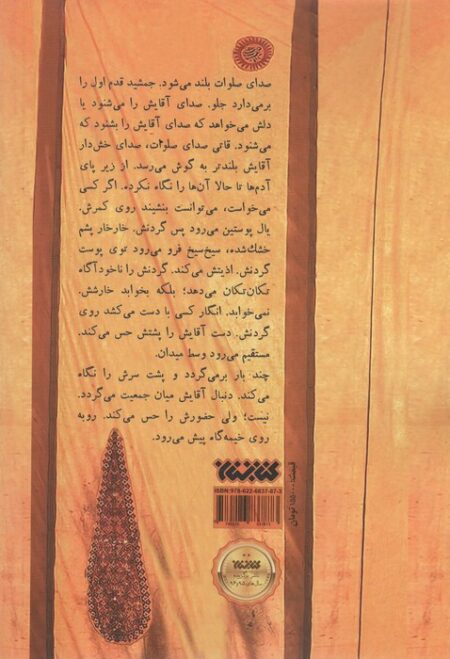 صدای صلوات بلند می‌شود. جمشید قدم اول را
برمی‌دارد جلو. صدای آقایش را می‌شنود یا
دلش می‌خواهد که صدای آقایش را بشنود که
می‌شنود. قاتی صدای صلوات، صدای خش‌دار
آقایش بلندتر به گوش می‌رسد. از زیر پای
آدم‌ها تا حالا آن‌ها را نگاه نکرده. اگر کسی
می‌خواست، می‌توانست بنشیند روی کمرش.
یال پوستین می‌رود پس گردنش. خارخار پشم
خشک‌شده، سیخ‌سیخ فرو می‌رود توی پوست
گردنش. اذیتش می‌کند. گردنش را ناخودآگاه
تکان‌تکان می‌دهد؛ بلکه بخوابد خارشش.
نمی‌خوابد. انگار کسی با دست می‌کشد روی
گردنش. دست آقایش را پشتش حس می‌کند.
مستقیم می‌رود وسط میدان.
چند بار برمی‌گردد و پشت سرش را نگاه
می‌کند. دنبال آقایش میان جمعیت می‌گردد.
نیست؛ ولی حضورش را حس می‌کند. روبه
روی خیمه‌گاه پیش می‌رود.
کتابستان
ISBN: 978-622-6837-87-3
تومان
کتابستان